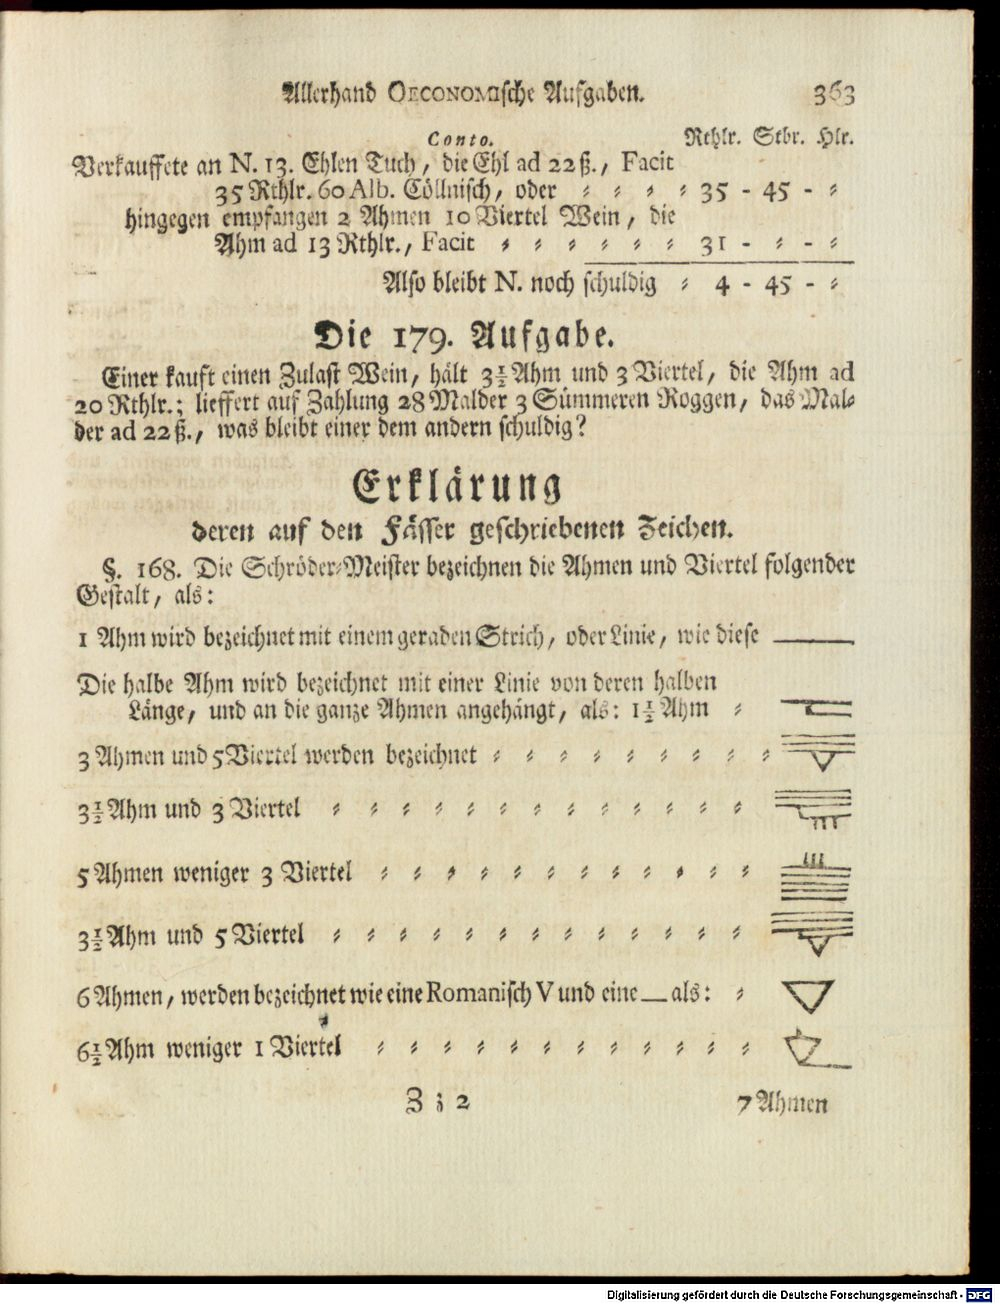 Allerhand OECONOMIsche Aufgaben. 363
Conto. Rthlr. Stbr. Hlr.
Verkauffete an N. 13. Ehlen Tuch, die Ehl ad 22 ß., Facit
35 Rthlr. 60 Alb. Cöllnisch, oder = = = = 35 - 45 - =
hingegen empfangen 2 Ahmen 10 Viertel Wein, die
Ahm ad 13 Rthlr., Facit = = = = = = 31 - = - =
Also bleibt N. noch schuldig = 4 - 45 - =
Die 179. Aufgabe.
Einer kauft einen Zulast Wein, hält 3½ Ahm und 3 Viertel, die Ahm ad
20 Rthlr.; lieffert auf Zahlung 28 Malder 3 Sümmeren Roggen, das Mal=
der ad 22 ß., was bleibt einer dem andern schuldig?
Erklärung
deren auf den Fässer geschriebenen Zeichen.
§. 168. Die Schröder=Meister bezeichnen die Ahmen und Viertel folgender
Gestalt, als:
1 Ahm wird bezeichnet mit einem geraden Strich, oder Linie, wie diese
Die halbe Ahm wird bezeichnet mit einer Linie von deren halben
Länge, und an die ganze Ahmen angehängt, als: 1½ Ahm =
3 Ahmen und 5 Viertel werden bezeichnet = = = = = = = = =
3½ Ahm und 3 Viertel = = = = = = = = = = = = =
5 Ahmen weniger 3 Viertel = = = = = = = = = = = =
3½ Ahm und 5 Viertel = = = = = = = = = = = = =
6 Ahmen, werden bezeichnet wie eine Romanisch V und eine — als: =
6½ Ahm weniger 1 Viertel = = = = = = = = = = = =
Z z 2 7 Ahmen
Digitalisierung gefördert durch die Deutsche Forschungsgemeinschaft - DFG